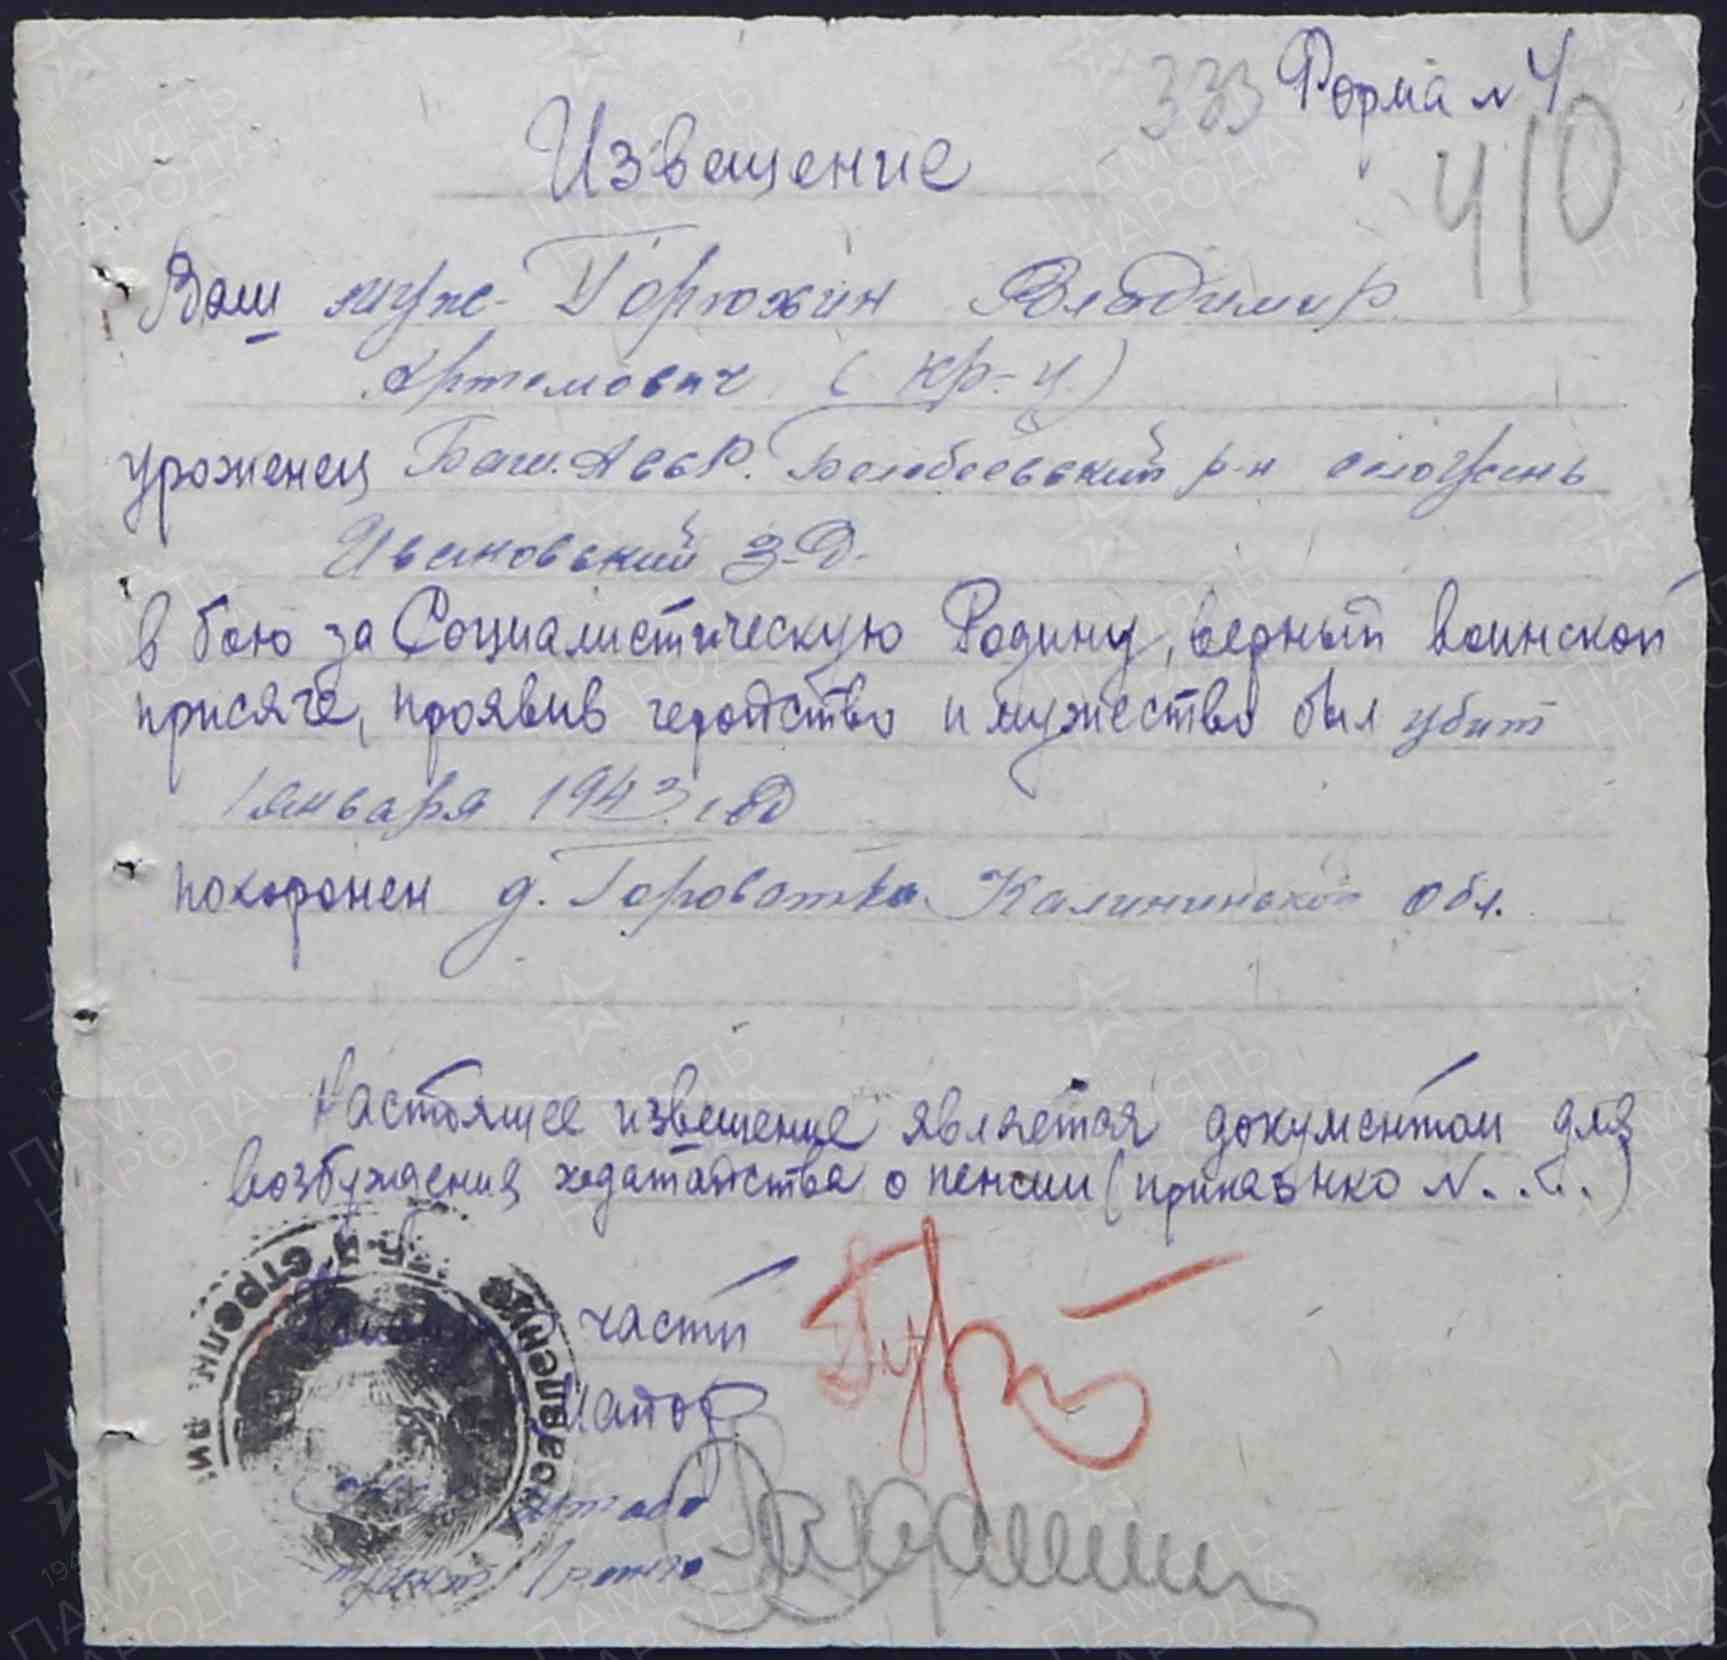 333 Форма № 4
410
Извещение
Ваш муж Горюхин Владимир
Артемович (кр-ц)
уроженец Баш. АССР. Белебеевский р-н
Ивановский з-д.
в бою за Социалистическую Родину, верный воинской
присяге, проявив геройство и мужество был убит
1 января 1943 год
похоронен д. Гороватка Калининской обл.
Настоящее извещение является документом для
возбуждения ходатайства о пенсии (приказ НКО №...)
части
Майор
штаба